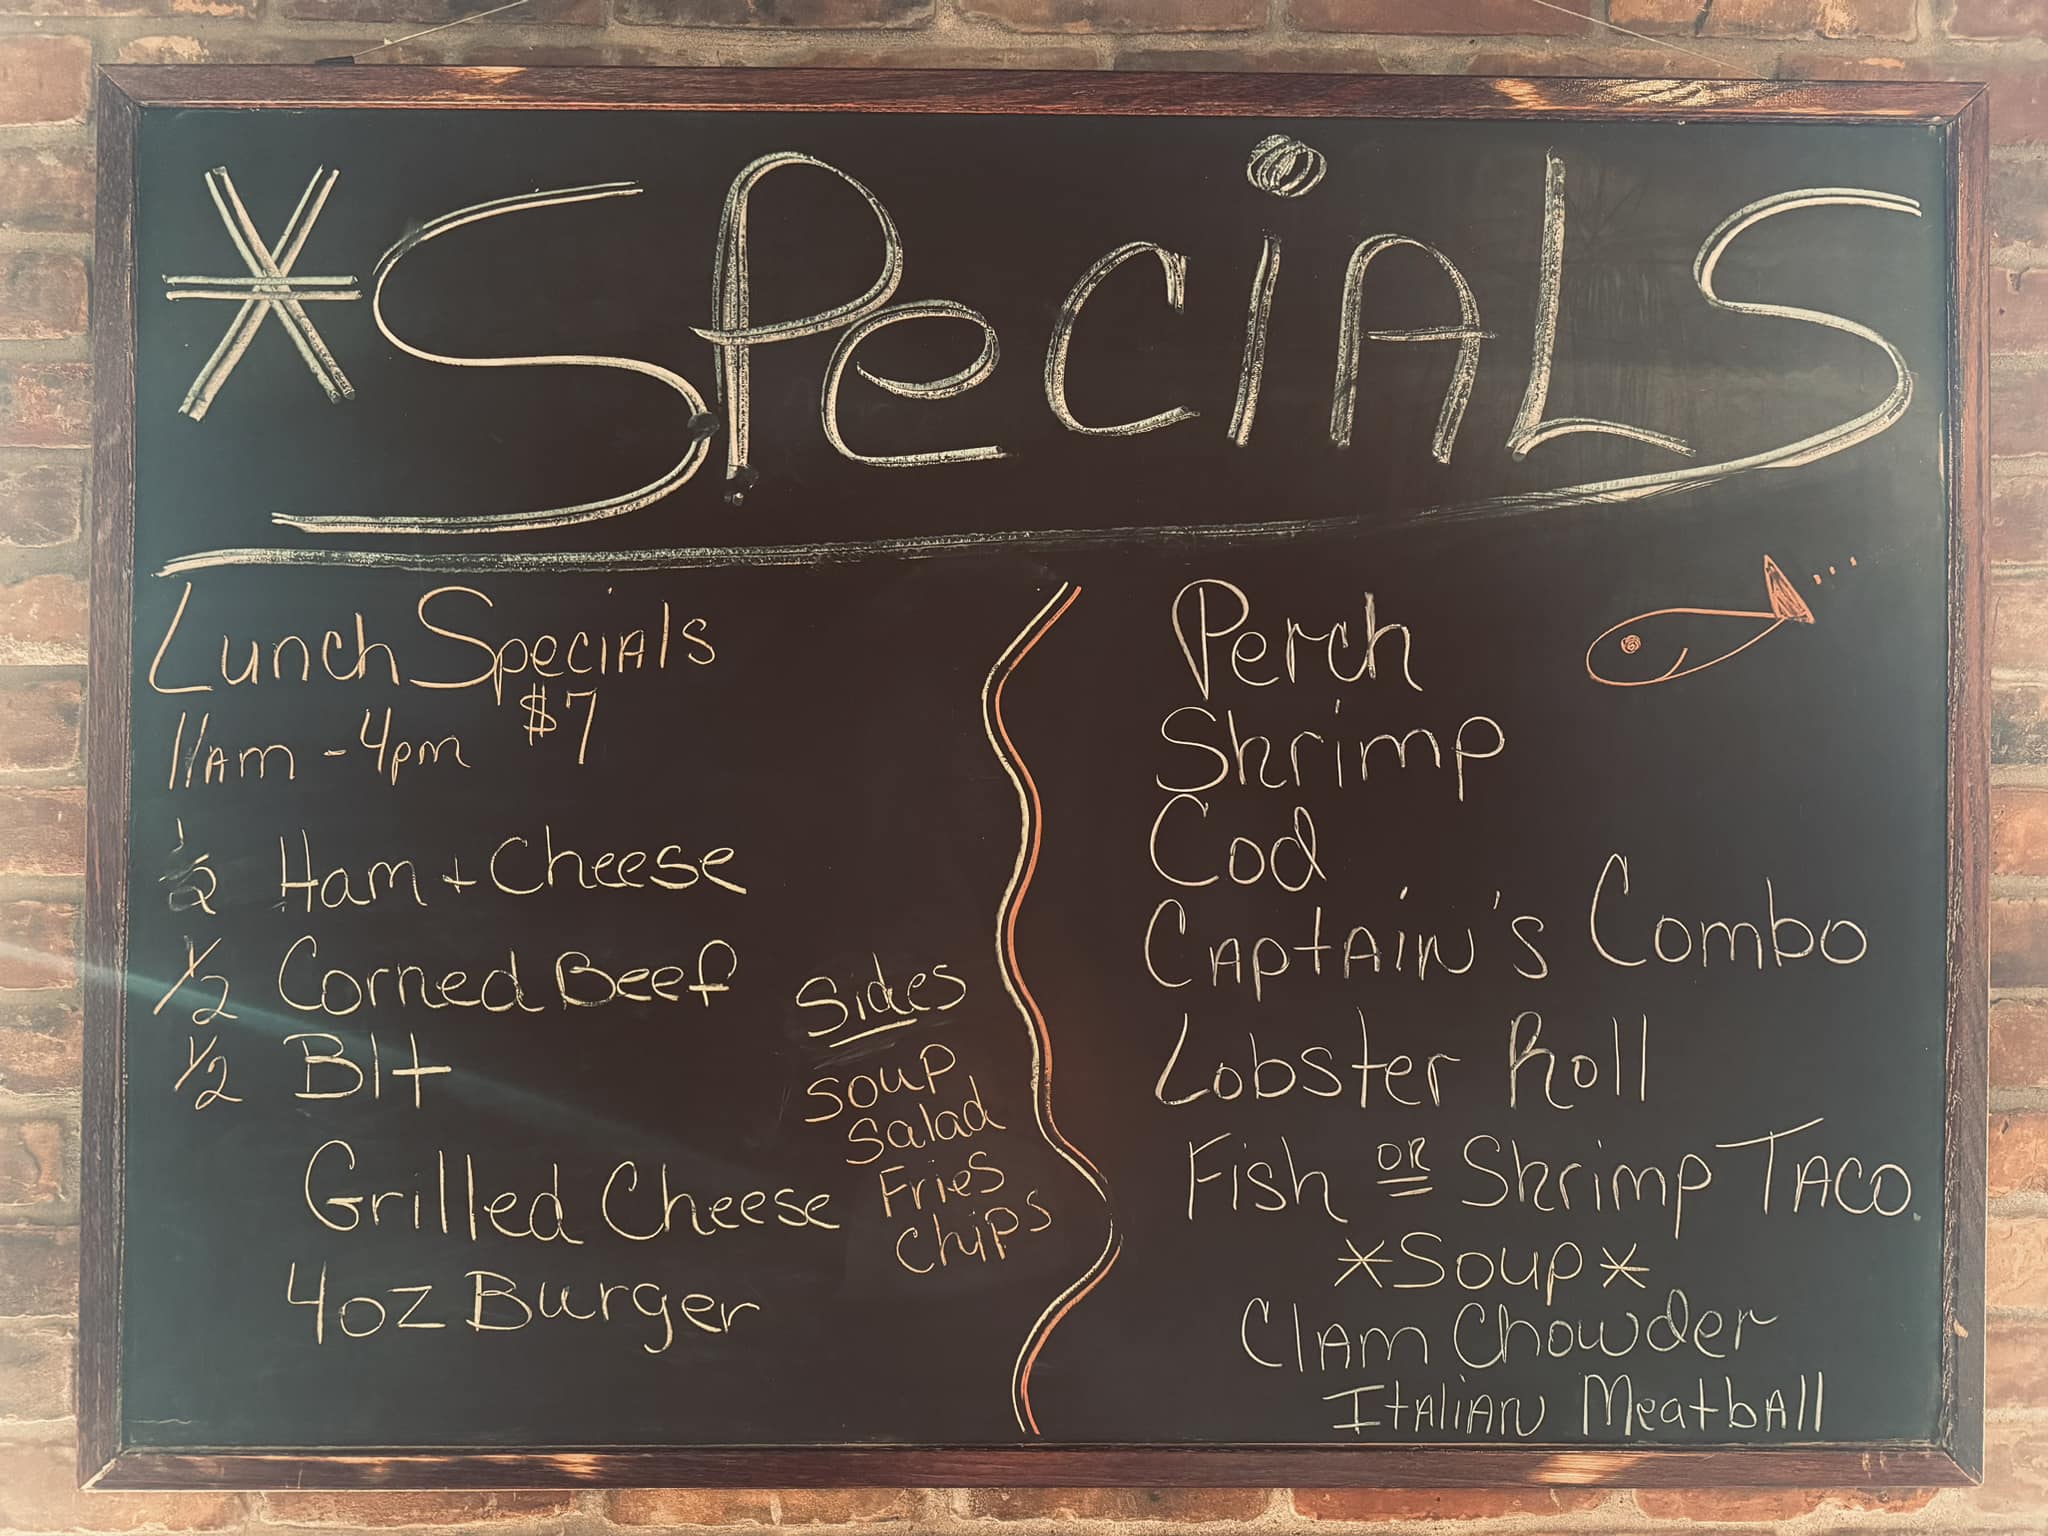 *SPeciALS
Lunch Specials
11am - 4pm $7
1/2 Ham + Cheese
1/2 Corned Beef
1/2 Blt
Grilled Cheese
4oz Burger
Sides
Soup
Salad
Fries
Chips
Perch
Shrimp
Cod
Captain's Combo
Lobster Roll
Fish or Shrimp Taco
*Soup*
Clam Chowder
Italian Meatball